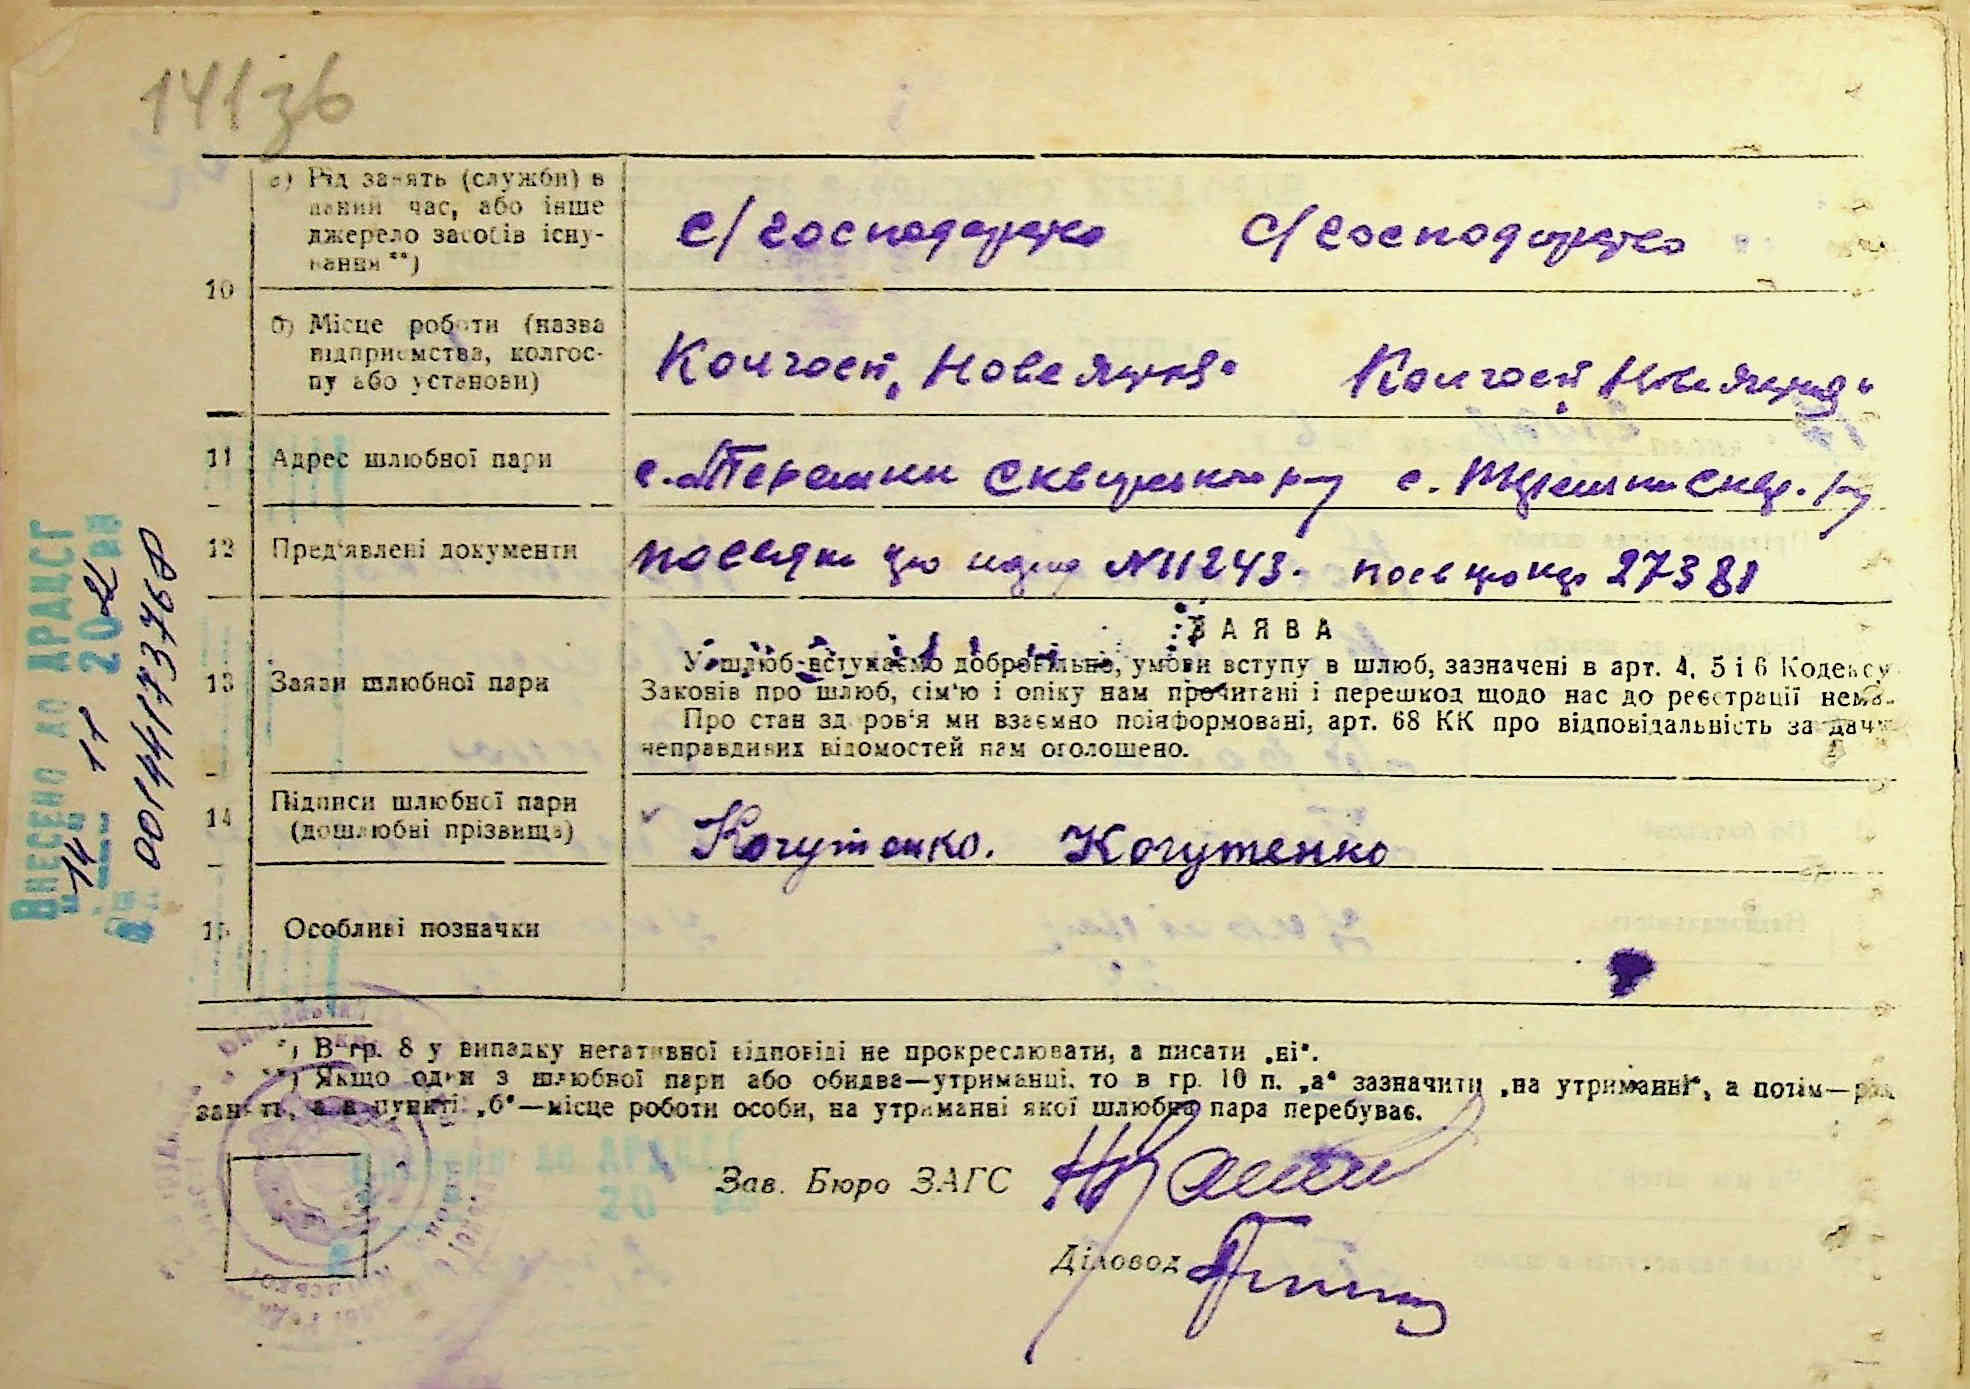 141зв
а) Рід занять (служби) в
даний час, або інше
джерело засобів існу-
вання **)
с/господарство с/господарство
10
б) Місце роботи (назва
підприємства, колгос-
пу або установи)
Колгосп „Нове життя“ Колгосп „Нове життя“
11 Адрес шлюбної пари
с. Терешки Сквирського р-ну с. Терешки Скв. р-ну
12 Пред'явлені документи
№ 11243. 27381
ЗАЯВА
13 Заяви шлюбної пари
У шлюб вступаємо добровільно, умови вступу в шлюб, зазначені в арт. 4, 5 і 6 Кодексу
Законів про шлюб, сім'ю і опіку нам прочитані і перешкод щодо нас до реєстрації нема.
Про стан здоров'я ми взаємно поінформовані, арт. 68 КК про відповідальність за дачу
неправдивих відомостей нам оголошено.
14 Підписи шлюбної пари
(дошлюбні прізвища)
Когутенко. Когутенко
15 Особливі позначки
*) В гр. 8 у випадку негативної відповіді не прокреслювати, а писати „ні“.
**) Якщо один з шлюбної пари або обидва—утриманці, то в гр. 10 п. „а“ зазначити „на утриманні“, а потім—рід
занять, а в пункті „б“—місце роботи особи, на утриманні якої шлюбна пара перебуває.
Зав. Бюро ЗАГС
Діловод
Внесено до ДРАЦСГ
"14" 11 2021
00144173768